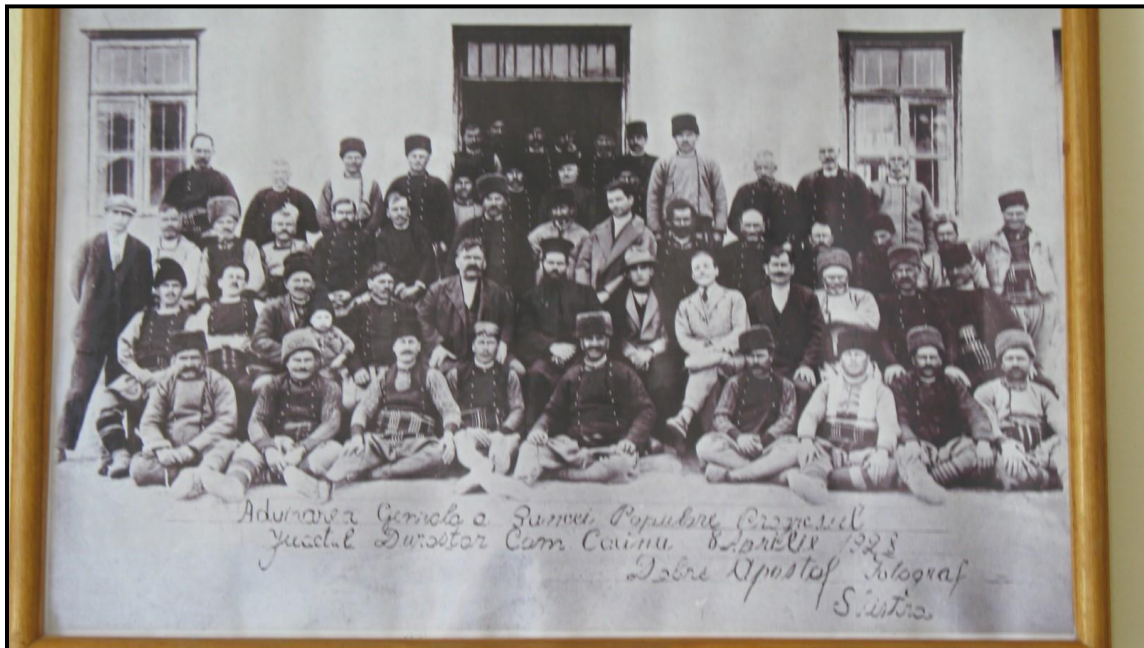 Adunarea Generala a Bancei Populare Progresul
Judetul Durostor Com 8 Aprelie 1923
Dobre Apostol Fotograf
Silistra